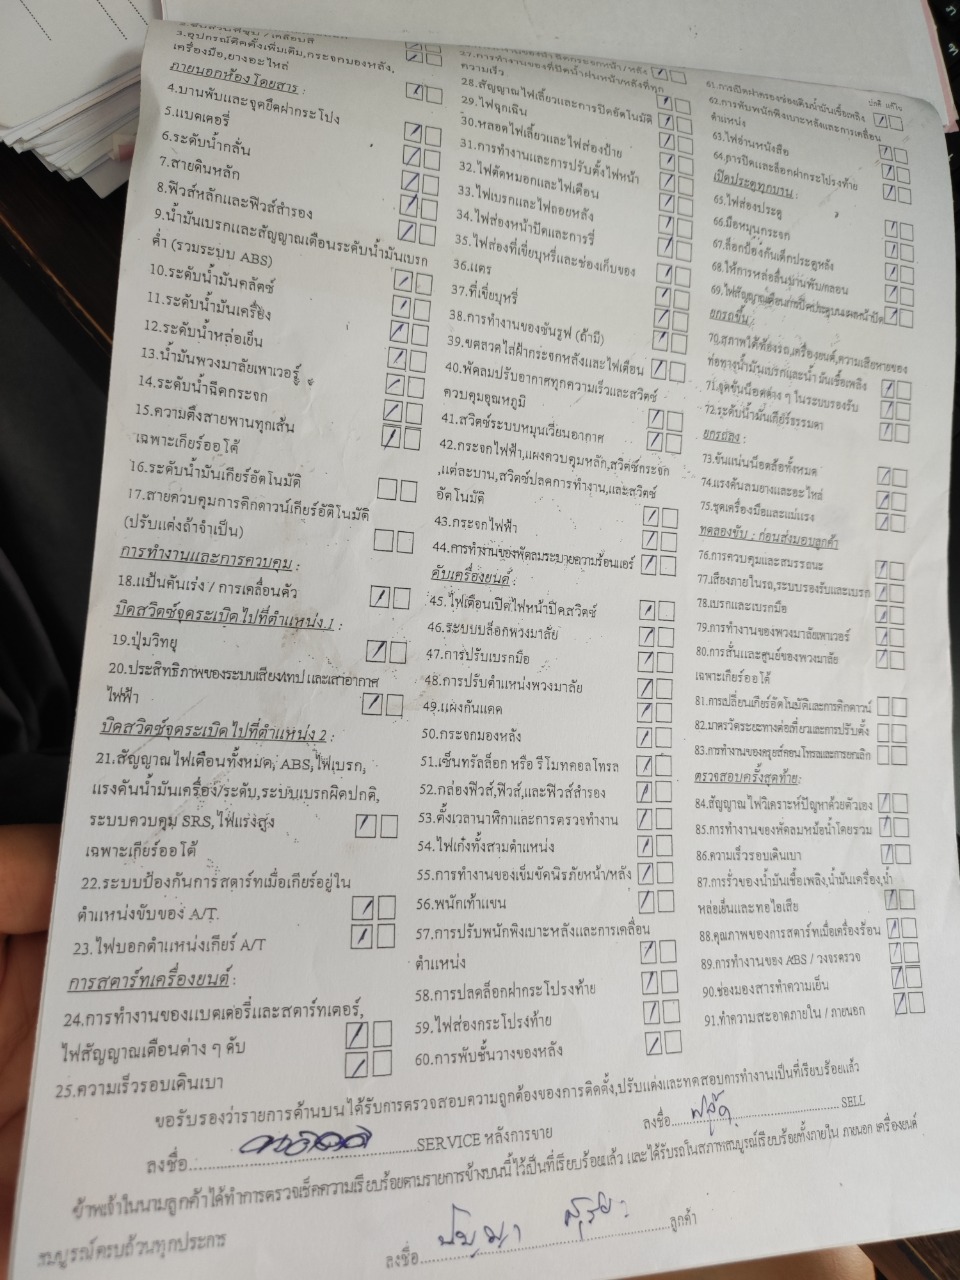 3.อุปกรณ์ติดตั้งเพิ่มเติม,กระจกมองหลัง,
เครื่องมือ,ยางอะไหล่
ภายนอกห้องโดยสาร :
4.บานพับและจุดยึดฝากระโปง
5.แบตเตอรี่
6.ระดับน้ำกลั่น
7.สายดินหลัก
8.ฟิวส์หลักและฟิวส์สำรอง
9.น้ำมันเบรกและสัญญาณเตือนระดับน้ำมันเบรก
ต่ำ (รวมระบบ ABS)
10.ระดับน้ำมันคลัตช์
11.ระดับน้ำมันเครื่อง
12.ระดับน้ำหล่อเย็น
13.น้ำมันพวงมาลัยเพาเวอร์
14.ระดับน้ำฉีดกระจก
15.ความตึงสายพานทุกเส้น
เฉพาะเกียร์ออโต้
16.ระดับน้ำมันเกียร์อัตโนมัติ
17.สายควบคุมการคิกดาวน์เกียร์อัตโนมัติ
(ปรับแต่งถ้าจำเป็น)
การทำงานและการควบคุม :
18.แป้นคันเร่ง / การเคลื่อนตัว
บิดสวิตช์จุดระเบิดไปที่ตำแหน่ง 1 :
19.ปุ่มวิทยุ
20.ประสิทธิภาพของระบบเสียง/เทป และเสาอากาศ
ไฟฟ้า
บิดสวิตช์จุดระเบิดไปที่ตำแหน่ง 2 :
21.สัญญาณไฟเตือนทั้งหมด, ABS,ไฟเบรก,
แรงดันน้ำมันเครื่อง/ระดับ,ระบบเบรกผิดปกติ,
ระบบควบคุม SRS,ไฟแรงสูง
เฉพาะเกียร์ออโต้
22.ระบบป้องกันการสตาร์ทเมื่อเกียร์อยู่ใน
ตำแหน่งขับของ A/T.
23.ไฟบอกตำแหน่งเกียร์ A/T
การสตาร์ทเครื่องยนต์ :
24.การทำงานของแบตเตอรี่และสตาร์ทเตอร์,
ไฟสัญญาณเตือนต่าง ๆ ดับ
25.ความเร็วรอบเดินเบา
27.การทำงานของที่ปัดน้ำฝนหน้า/หลังที่ทุก
ความเร็ว
28.สัญญาณไฟเลี้ยวและการปิดอัตโนมัติ
29.ไฟฉุกเฉิน
30.หลอดไฟเลี้ยวและไฟส่องป้าย
31.การทำงานและการปรับตั้งไฟหน้า
32.ไฟตัดหมอกและไฟเตือน
33.ไฟเบรกและไฟถอยหลัง
34.ไฟส่องหน้าปัดและการรี่
35.ไฟส่องที่เขี่ยบุหรี่และช่องเก็บของ
36.แตร
37.ที่เขี่ยบุหรี่
38.การทำงานของซันรูฟ (ถ้ามี)
39.ขดลวดไล่ฝ้ากระจกหลังและไฟเตือน
40.พัดลมปรับอากาศทุกความเร็วและสวิตช์
ควบคุมอุณหภูมิ
41.สวิตช์ระบบหมุนเวียนอากาศ
42.กระจกไฟฟ้า,แผงควบคุมหลัก,สวิตช์กระจก
,แต่ละบาน,สวิตช์ปลดการทำงาน,และสวิตช์
อัตโนมัติ
43.กระจกไฟฟ้า
44.การทำงานของพัดลมระบายความร้อนแอร์
ดับเครื่องยนต์ :
45.ไฟเตือนเปิดไฟหน้าปิดสวิตช์
46.ระบบบล็อกพวงมาลัย
47.การปรับเบรกมือ
48.การปรับตำแหน่งพวงมาลัย
49.แผ่งกันแดด
50.กระจกมองหลัง
51.เซ็นทรัลล็อก หรือ รีโมทคอลโทรล
52.กล่องฟิวส์,ฟิวส์,และฟิวส์สำรอง
53.ตั้งเวลานาฬิกาและการตรวจทำงาน
54.ไฟเก๋งทั้งสามตำแหน่ง
55.การทำงานของเข็มขัดนิรภัยหน้า/หลัง
56.พนักเท้าแขน
57.การปรับพนักพิงเบาะหลังและการเคลื่อน
ตำแหน่ง
58.การปลดล็อกฝากระโปรงท้าย
59.ไฟส่องกระโปรงท้าย
60.การพับชั้นวางของหลัง
ปกติ แก้ไข
61.การเปิดฝาครอบช่องเติมน้ำมันเชื้อเพลิง
62.การพับพนักพิงเบาะหลังและการเคลื่อน
ตำแหน่ง
63.ไฟอ่านหนังสือ
64.การปิดและล็อกฝากระโปรงท้าย
เปิดประตูทุกบาน :
65.ไฟส่องประตู
66.มือหมุนกระจก
67.ล็อกป้องกันเด็กประตูหลัง
68.ให้การหล่อลื่นบานพับ/กลอน
69.ไฟสัญญาณเตือนการปิดประตูบนแผงหน้าปัด
ยกรถขึ้น :
70.สภาพใต้ท้องรถ,เครื่องยนต์,ความเสียหายของ
ท่อทางน้ำมันเบรกและน้ำมันเชื้อเพลิง
71.จุดขันน็อตต่าง ๆ ในระบบรองรับ
72.ระดับน้ำมันเกียร์ธรรมดา
ยกรถลง :
73.ขันแน่นน็อตล้อทั้งหมด
74.แรงดันลมยางและอะไหล่
75.ชุดเครื่องมือและแม่แรง
ทดลองขับ : ก่อนส่งมอบลูกค้า
76.การควบคุมและสมรรถนะ
77.เสียงภายในรถ,ระบบรองรับและเบรก
78.เบรกและเบรกมือ
79.การทำงานของพวงมาลัยเพาเวอร์
80.การสั่นและศูนย์ของพวงมาลัย
เฉพาะเกียร์ออโต้
81.การเปลี่ยนเกียร์อัตโนมัติและการคิกดาวน์
82.มาตรวัดระยะทางต่อเที่ยวและการปรับตั้ง
83.การทำงานของครุยส์คอนโทรลและการยกเลิก
ตรวจสอบครั้งสุดท้าย:
84.สัญญาณ ไฟวิเคราะห์ปัญหาด้วยตัวเอง
85.การทำงานของพัดลมหม้อน้ำโดยรวม
86.ความเร็วรอบเดินเบา
87.การรั่วของน้ำมันเชื้อเพลิง,น้ำมันเครื่อง,น้ำ
หล่อเย็นและทอไอเสีย
88.คุณภาพของการสตาร์ทเมื่อเครื่องร้อน
89.การทำงานของ ABS / วงจรตรวจ
90.ช่องมองสารทำความเย็น
91.ทำความสะอาดภายใน / ภายนอก
ขอรับรองว่ารายการด้านบนได้รับการตรวจสอบความถูกต้องของการติดตั้ง,ปรับแต่งและทดสอบการทำงานเป็นที่เรียบร้อยแล้ว
ลงชื่อ..........SERVICE หลังการขาย
ลงชื่อ..........SELL
ข้าพเจ้าในนามลูกค้าได้ทำการตรวจเช็คความเรียบร้อยตามรายการข้างบนนี้ไว้เป็นที่เรียบร้อยแล้ว และได้รับรถในสภาพสมบูรณ์เรียบร้อยทั้งภายใน ภายนอก เครื่องยนต์
สมบูรณ์ครบถ้วนทุกประการ
ลงชื่อ..........ลูกค้า